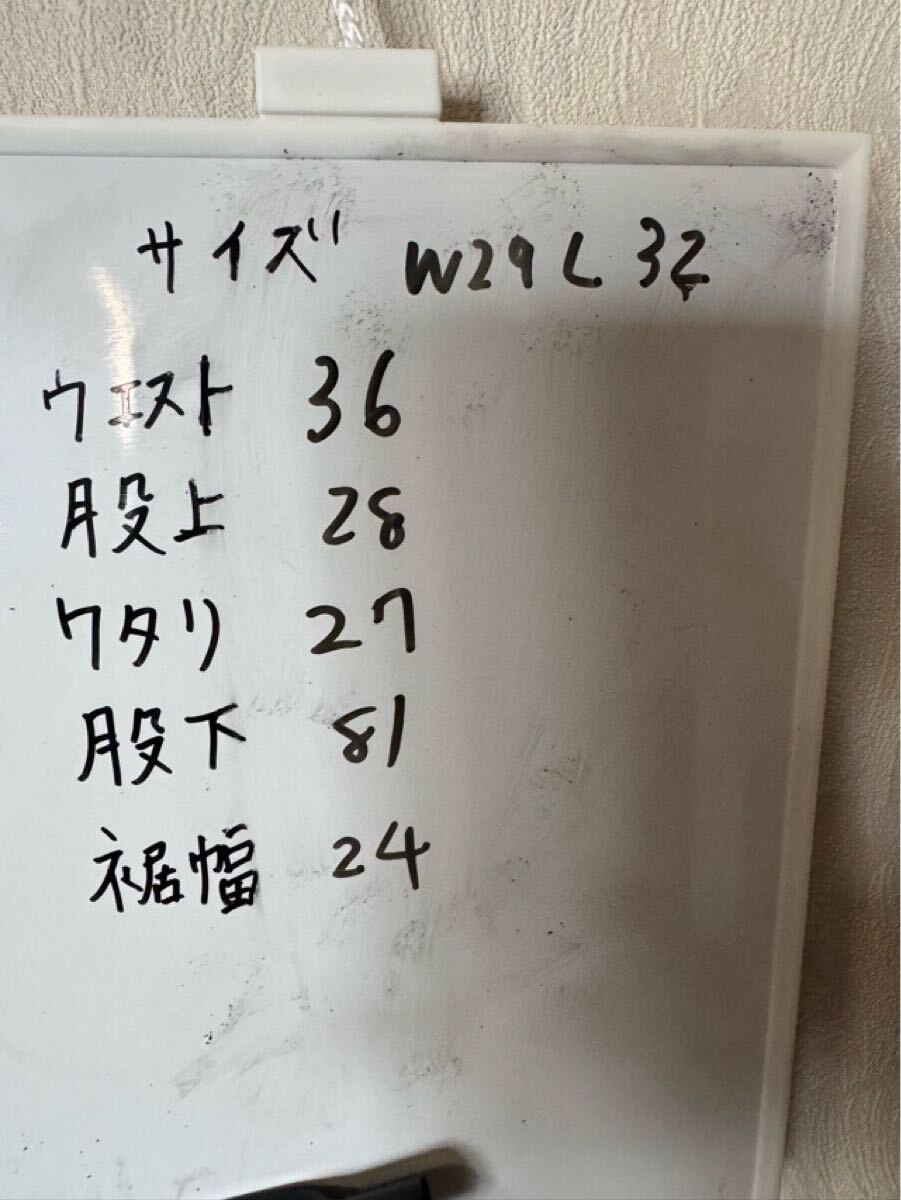 サイズ W29 L 32
ウエスト 36
股上 28
ワタリ 27
股下 81
裾幅 24